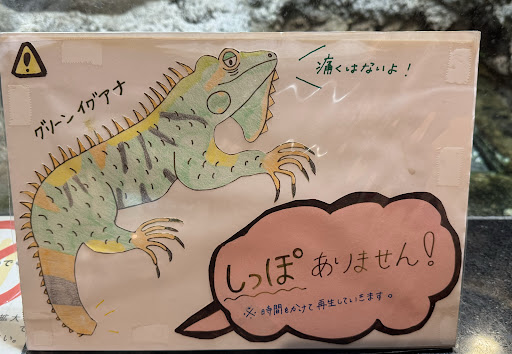 グリーンイグアナ
痛くはないよ!
しっぽ ありません!
※時間をかけて再生していきます。